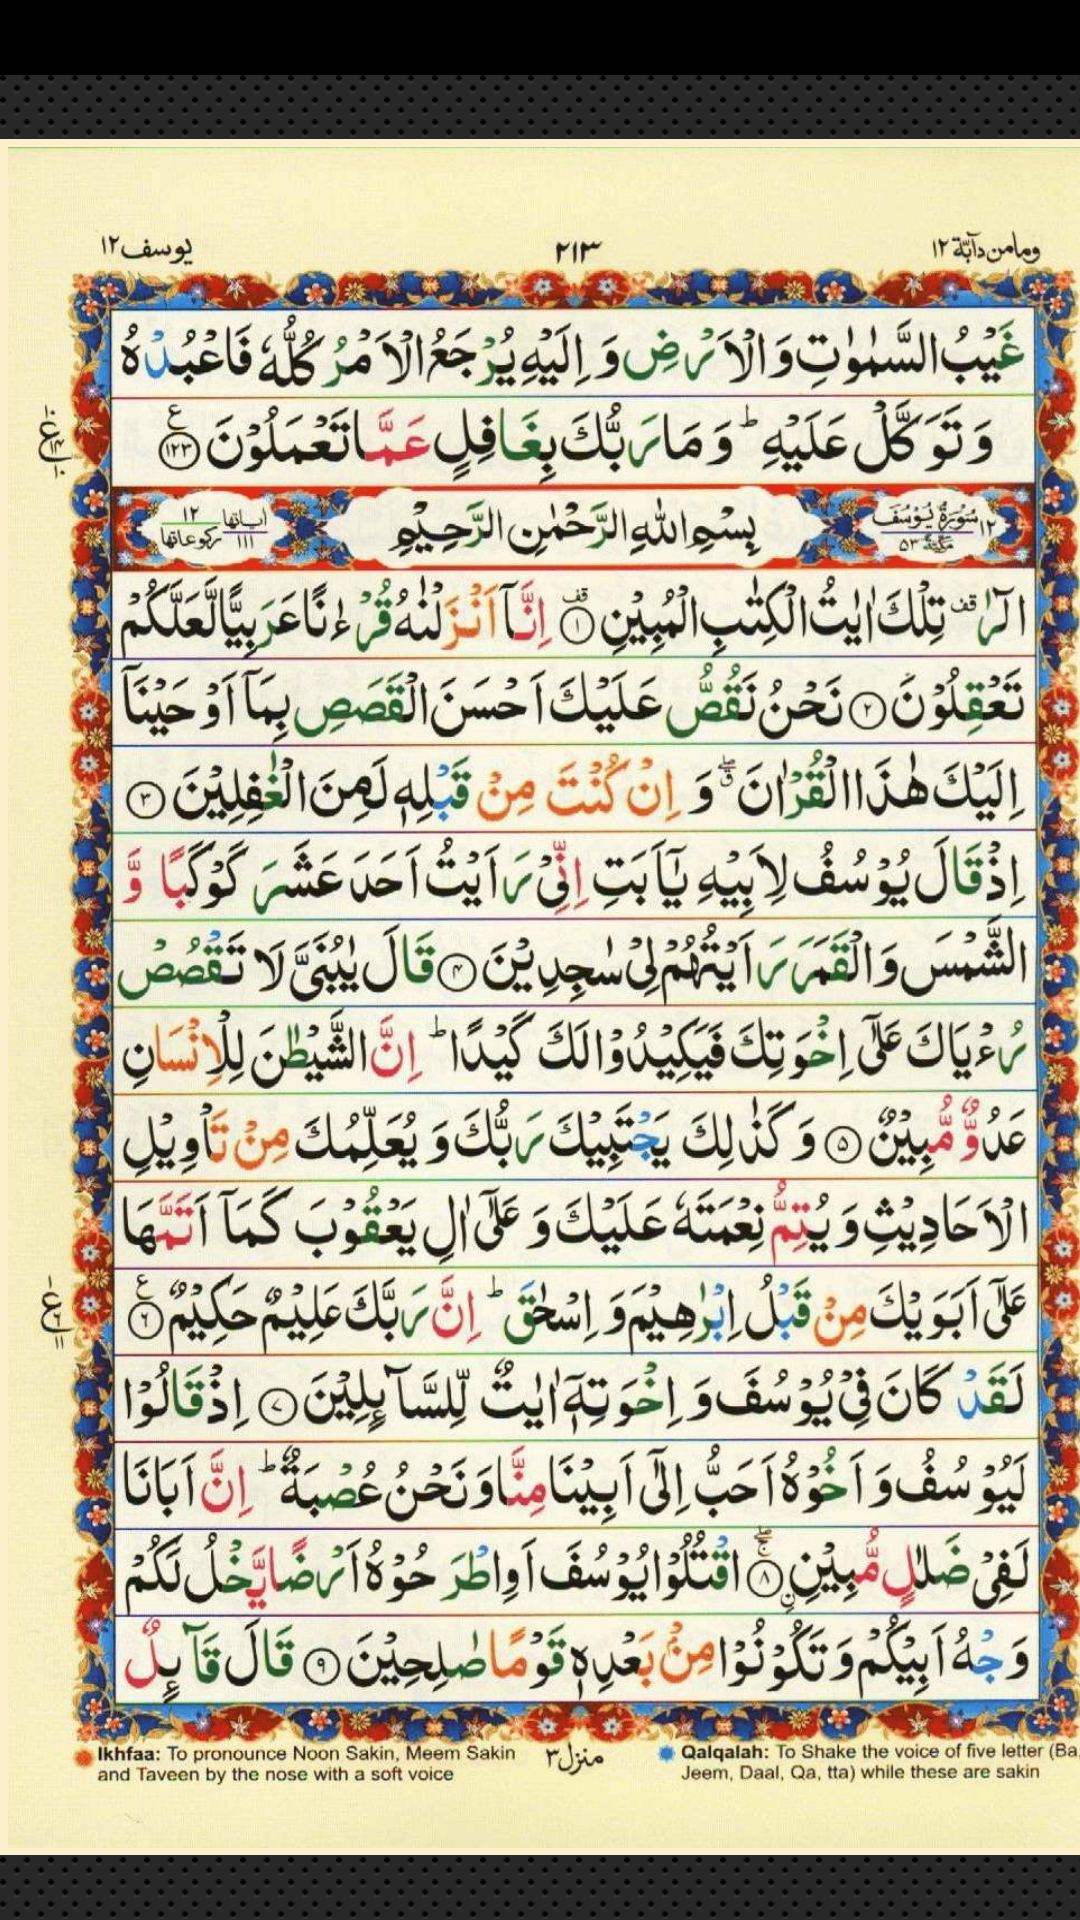 وما من دآبّة ١٢
٢١٣
يوسف ١٢
غَيْبُ السَّمٰوٰتِ وَ الْاَرْضِ وَ اِلَيْهِ يُرْجَعُ الْاَمْرُ كُلُّهٗ فَاعْبُدْهُ
وَ تَوَكَّلْ عَلَيْهِ ؕ وَ مَا رَبُّكَ بِغَافِلٍ عَمَّا تَعْمَلُوْنَ ﴿۱۲۳﴾ ع
ع ١٠ ١٤ ١٠
١٢ سُوْرَةُ يُوْسُفَ مَكِّيَّةٌ ٥٣
بِسْمِ اللّٰهِ الرَّحْمٰنِ الرَّحِيْمِ
اٰیاتها ١١١ رکوعاتها ١٢
الٓرٰ قف تِلْكَ اٰيٰتُ الْكِتٰبِ الْمُبِيْنِ ﴿۱﴾ قف اِنَّاۤ اَنْزَلْنٰهُ قُرْءٰنًا عَرَبِيًّا لَّعَلَّكُمْ
تَعْقِلُوْنَ ﴿۲﴾ نَحْنُ نَقُصُّ عَلَيْكَ اَحْسَنَ الْقَصَصِ بِمَاۤ اَوْحَيْنَاۤ
اِلَيْكَ هٰذَا الْقُرْاٰنَ ۖق وَ اِنْ كُنْتَ مِنْ قَبْلِهٖ لَمِنَ الْغٰفِلِيْنَ ﴿۳﴾
اِذْ قَالَ يُوْسُفُ لِاَبِيْهِ يٰۤاَبَتِ اِنِّيْ رَاَيْتُ اَحَدَ عَشَرَ كَوْكَبًا وَّ
الشَّمْسَ وَ الْقَمَرَ رَاَيْتُهُمْ لِيْ سٰجِدِيْنَ ﴿۴﴾ قَالَ يٰبُنَيَّ لَا تَقْصُصْ
رُءْيَاكَ عَلٰۤى اِخْوَتِكَ فَيَكِيْدُوْا لَكَ كَيْدًا ؕ اِنَّ الشَّيْطٰنَ لِلْاِنْسَانِ
عَدُوٌّ مُّبِيْنٌ ﴿۵﴾ وَ كَذٰلِكَ يَجْتَبِيْكَ رَبُّكَ وَ يُعَلِّمُكَ مِنْ تَاْوِيْلِ
الْاَحَادِيْثِ وَ يُتِمُّ نِعْمَتَهٗ عَلَيْكَ وَ عَلٰۤى اٰلِ يَعْقُوْبَ كَمَاۤ اَتَمَّهَا
عَلٰۤى اَبَوَيْكَ مِنْ قَبْلُ اِبْرٰهِيْمَ وَ اِسْحٰقَ ؕ اِنَّ رَبَّكَ عَلِيْمٌ حَكِيْمٌ ﴿۶﴾ ع
ع ١ ٦ ١١
لَقَدْ كَانَ فِيْ يُوْسُفَ وَ اِخْوَتِهٖۤ اٰيٰتٌ لِّلسَّآئِلِيْنَ ﴿۷﴾ اِذْ قَالُوْا
لَيُوْسُفُ وَ اَخُوْهُ اَحَبُّ اِلٰۤى اَبِيْنَا مِنَّا وَ نَحْنُ عُصْبَةٌ ؕ اِنَّ اَبَانَا
لَفِيْ ضَلٰلٍ مُّبِيْنِ ﴿۸﴾ اقْتُلُوْا يُوْسُفَ اَوِ اطْرَحُوْهُ اَرْضًا يَّخْلُ لَكُمْ
وَجْهُ اَبِيْكُمْ وَ تَكُوْنُوْا مِنْۢ بَعْدِهٖ قَوْمًا صٰلِحِيْنَ ﴿۹﴾ قَالَ قَآئِلٌ
Ikhfaa: To pronounce Noon Sakin, Meem Sakin
and Taveen by the nose with a soft voice
منزل ٣
Qalqalah: To Shake the voice of five letter (Ba
Jeem, Daal, Qa, tta) while these are sakin